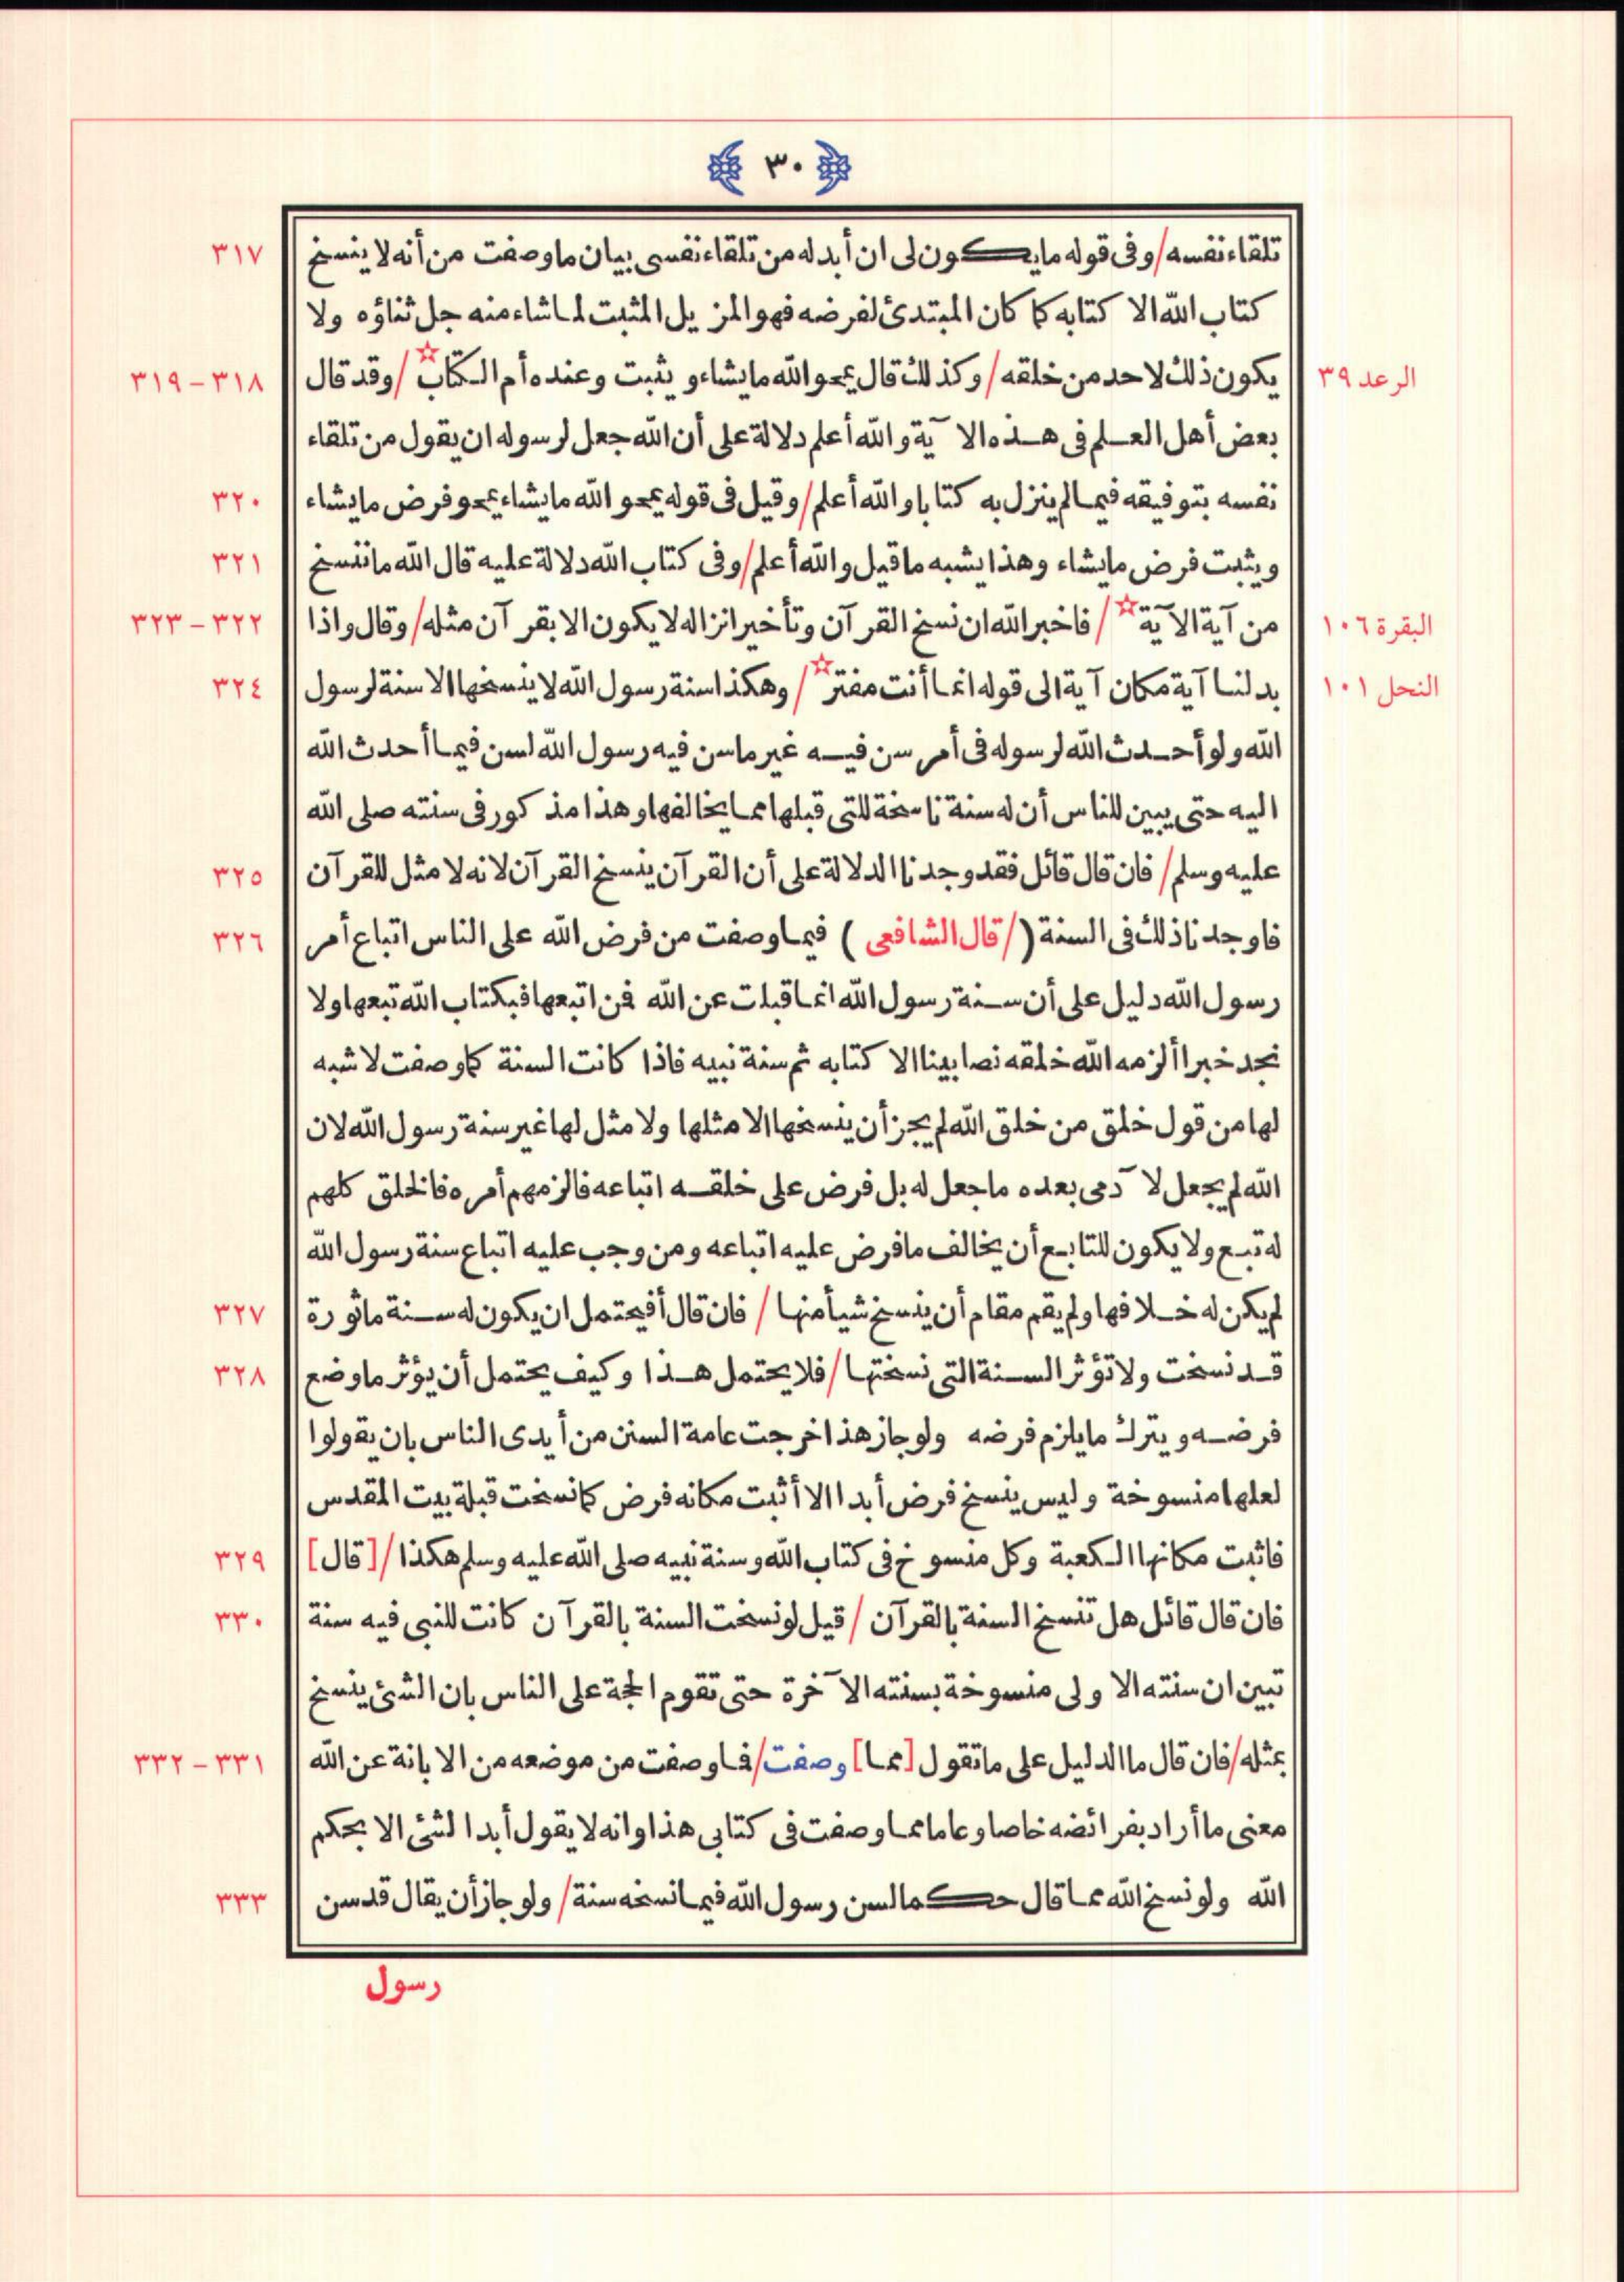 ٣٠
تلقاء نفسه/ وفى قوله ما يكون لى ان أبدله من تلقاء نفسى بيان ما وصفت من أنه لا ينسخ ٣١٧
كتاب الله الا كتابه كما كان المبتدئ لفرضه فهو المزيل المثبت لما شاء منه جل ثناؤه ولا
الرعد ٣٩ يكون ذلك لاحد من خلقه/ وكذلك قال يمحو الله ما يشاء ويثبت وعنده أم الكتاب☆/ وقد قال ٣١٨-٣١٩
بعض أهل العلم فى هذه الآية والله أعلم دلالة على أن الله جعل لرسوله ان يقول من تلقاء
نفسه بتوفيقه فيما لم ينزل به كتابا والله أعلم/ وقيل فى قوله يمحو الله ما يشاء يمحو فرض ما يشاء ٣٢٠
ويثبت فرض ما يشاء وهذا يشبه ما قيل والله أعلم/ وفى كتاب الله دلالة عليه قال الله ما ننسخ ٣٢١
البقرة ١٠٦ من آية الآية☆/ فاخبر الله ان نسخ القرآن وتأخير انزاله لا يكون الا بقرآن مثله/ وقال واذا ٣٢٢-٣٢٣
النحل ١٠١ بدلنا آية مكان آية الى قوله انما أنت مفتر☆/ وهكذا سنة رسول الله لا ينسخها الا سنة لرسول ٣٢٤
الله ولو أحدث الله لرسوله فى أمر سن فيه غير ما سن فيه رسول الله لسن فيما أحدث الله
اليه حتى يبين للناس أن له سنة ناسخة للتى قبلها مما يخالفها وهذا مذكور فى سنته صلى الله
عليه وسلم/ فان قال قائل فقد وجدنا الدلالة على أن القرآن ينسخ القرآن لانه لا مثل للقرآن ٣٢٥
فاوجدنا ذلك فى السنة (/ قال الشافعى ) فيما وصفت من فرض الله على الناس اتباع أمر ٣٢٦
رسول الله دليل على أن سنة رسول الله انما قبلت عن الله فمن اتبعها فبكتاب الله تبعها ولا
نجد خبرا ألزمه الله خلقه نصا بينا الا كتابه ثم سنة نبيه فاذا كانت السنة كما وصفت لا شبه
لها من قول خلق من خلق الله لم يجز أن ينسخها الا مثلها ولا مثل لها غير سنة رسول الله لان
الله لم يجعل لآدمى بعده ما جعل له بل فرض على خلقه اتباعه فالزمهم أمره فالخلق كلهم
له تبع ولا يكون للتابع أن يخالف ما فرض عليه اتباعه ومن وجب عليه اتباع سنة رسول الله
لم يكن له خلافها ولم يقم مقام أن ينسخ شيأ منها/ فان قال أفيحتمل ان يكون له سنة ماثورة ٣٢٧
قد نسخت ولا تؤثر السنة التى نسختها/ فلا يحتمل هذا وكيف يحتمل أن يؤثر ما وضع ٣٢٨
فرضه ويترك ما يلزم فرضه ولو جاز هذا خرجت عامة السنن من أيدى الناس بان يقولوا
لعلها منسوخة وليس ينسخ فرض أبدا الا أثبت مكانه فرض كما نسخت قبلة بيت المقدس
فاثبت مكانها الكعبة وكل منسوخ فى كتاب الله وسنة نبيه صلى الله عليه وسلم هكذا/ [قال] ٣٢٩
فان قال قائل هل تنسخ السنة بالقرآن/ قيل لو نسخت السنة بالقرآن كانت للنبى فيه سنة ٣٣٠
تبين ان سنته الاولى منسوخة بسنته الآخرة حتى تقوم الحجة على الناس بان الشئ ينسخ
بمثله/ فان قال ما الدليل على ما تقول [مما] وصفت/ فما وصفت من موضعه من الابانة عن الله ٣٣١-٣٣٢
معنى ما أراد بفرائضه خاصا وعاما مما وصفت فى كتابى هذا وانه لا يقول أبدا لشئ الا بحكم
الله ولو نسخ الله مما قال حكما لسن رسول الله فيما نسخه سنة/ ولو جاز أن يقال قد سن ٣٣٣
رسول